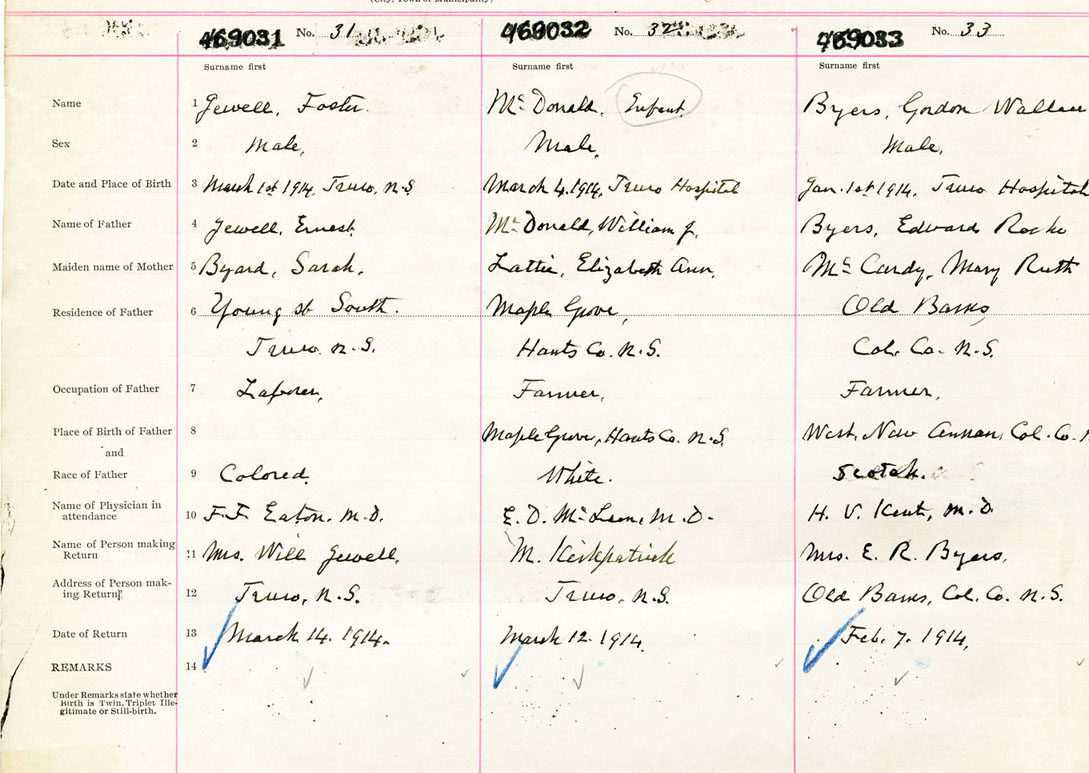 (City, Town or Municipality)
469031 No. 31 469032 No. 32 469033 No. 33
Surname first Surname first Surname first
Name 1 Jewell, Foster. Mc Donald, Enfant. Byers, Gordon Wallace
Sex 2 Male, Male, Male,
Date and Place of Birth 3 March 1st 1914, Truro, N.S March 4, 1914, Truro Hospital Jan. 1st 1914, Truro Hospital
Name of Father 4 Jewell, Ernest. Mc Donald, William J, Byers, Edward Rocke
Maiden name of Mother 5 Byard, Sarah, Lattie, Elizabeth Ann, Mc Cardy, Mary Ruth
Residence of Father 6 Young st South. Maple Grove, Old Barns,
Truro. N.S. Hants Co. N.S. Col. Co. N.S.
Occupation of Father 7 Laborer, Farmer, Farmer,
Place of Birth of Father 8 Maple Grove, Hants Co. N.S. West New Annan, Col. Co.
and
Race of Father 9 Colored. White. Scotch.
Name of Physician in
attendance 10 F.F. Eaton, M.D. E. D. McLean, M.D. H. V. Kent, M.D.
Name of Person making
Return 11 Mrs. Will Jewell, M. Kirkpatrick Mrs. E. R. Byers,
Address of Person mak-
ing Return 12 Truro, N.S. Truro, N.S. Old Barns, Col. Co. N.S.
Date of Return 13 March 14. 1914. March 12. 1914. Feb. 7. 1914,
REMARKS 14
Under Remarks state whether
Birth is Twin, Triplet Ille-
gitimate or Still-birth.